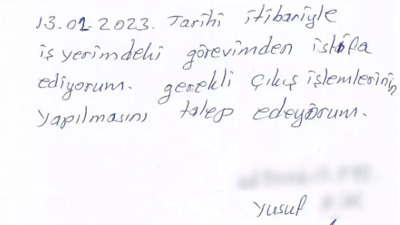 13.01.2023. Tarihi itibariyle
iş yerimdeki görevimden istifa
ediyorum. gerekli çıkış işlemlerinin
yapılmasını talep edeyorum.
Yusuf